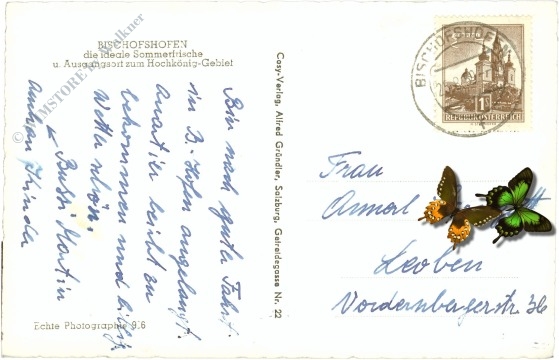 BISCHOFSHOFEN
die ideale Sommerfrische
u. Ausgangsort zum Hochkönig-Gebiet
Bin nach guter Fahrt
in B. Hofen angelangt.
Quartier leicht zu
bekommen und billig.
Wetter schön.
Bussi Martin
Echte Photographie
Cosy-Verlag, Alfred Gründler, Salzburg, Getreidegasse Nr. 22
BISCHOFSHOFEN
REPUBLIK ÖSTERREICH
Frau
Leoben
Vordernbergerstr. 36